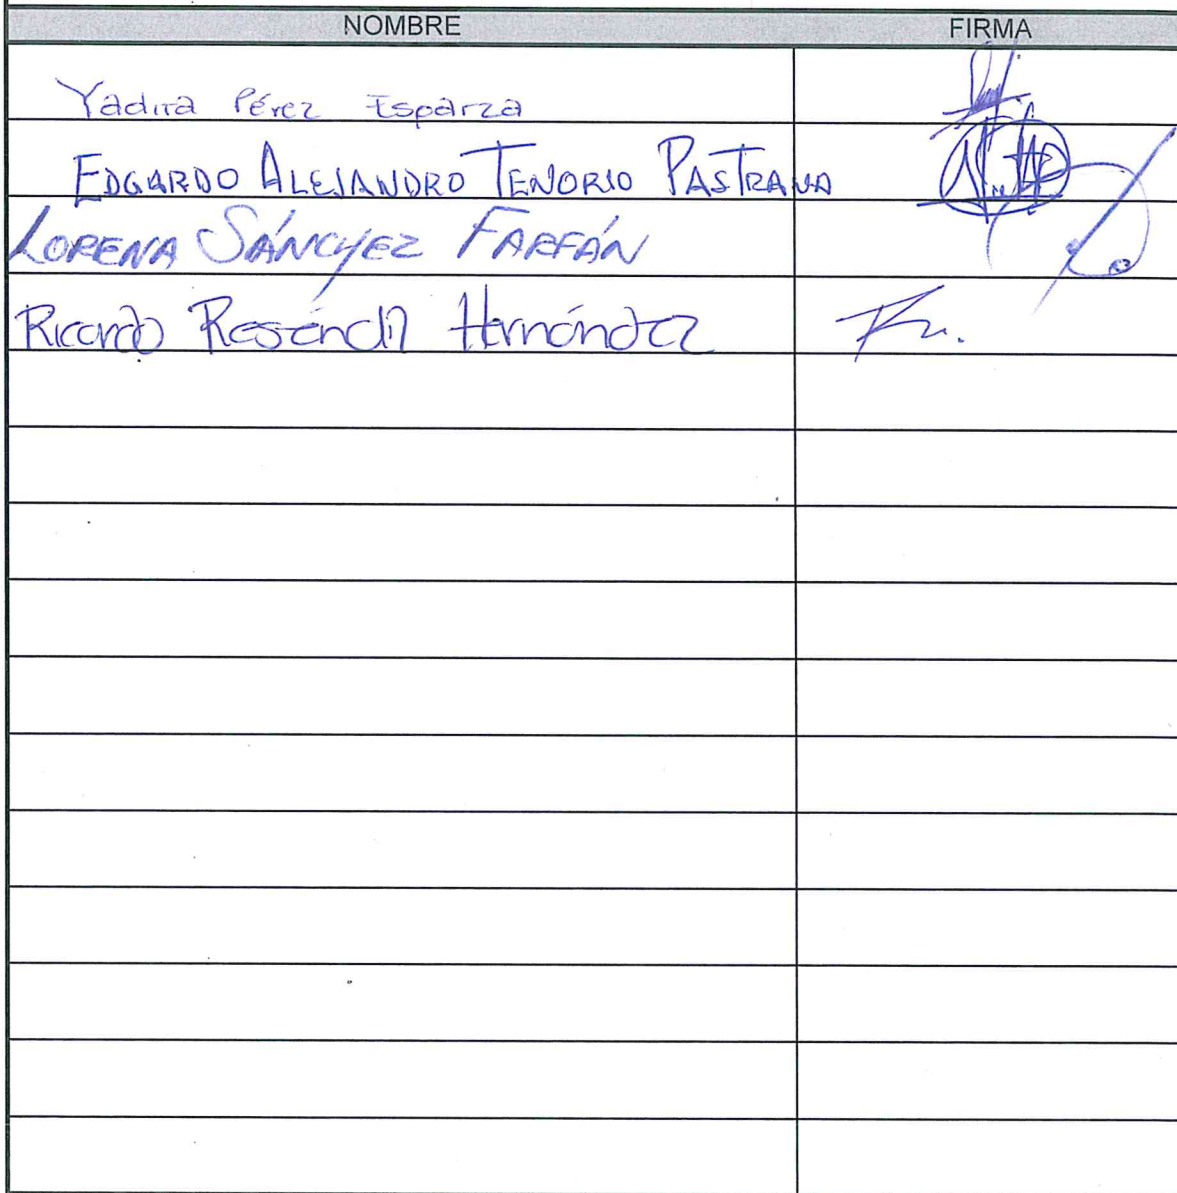 NOMBRE FIRMA
Yadira Pérez Esparza
EDGARDO ALEJANDRO TENORIO PASTRANA
LORENA SÁNCHEZ FARFÁN
Ricardo Reséndiz Hernández